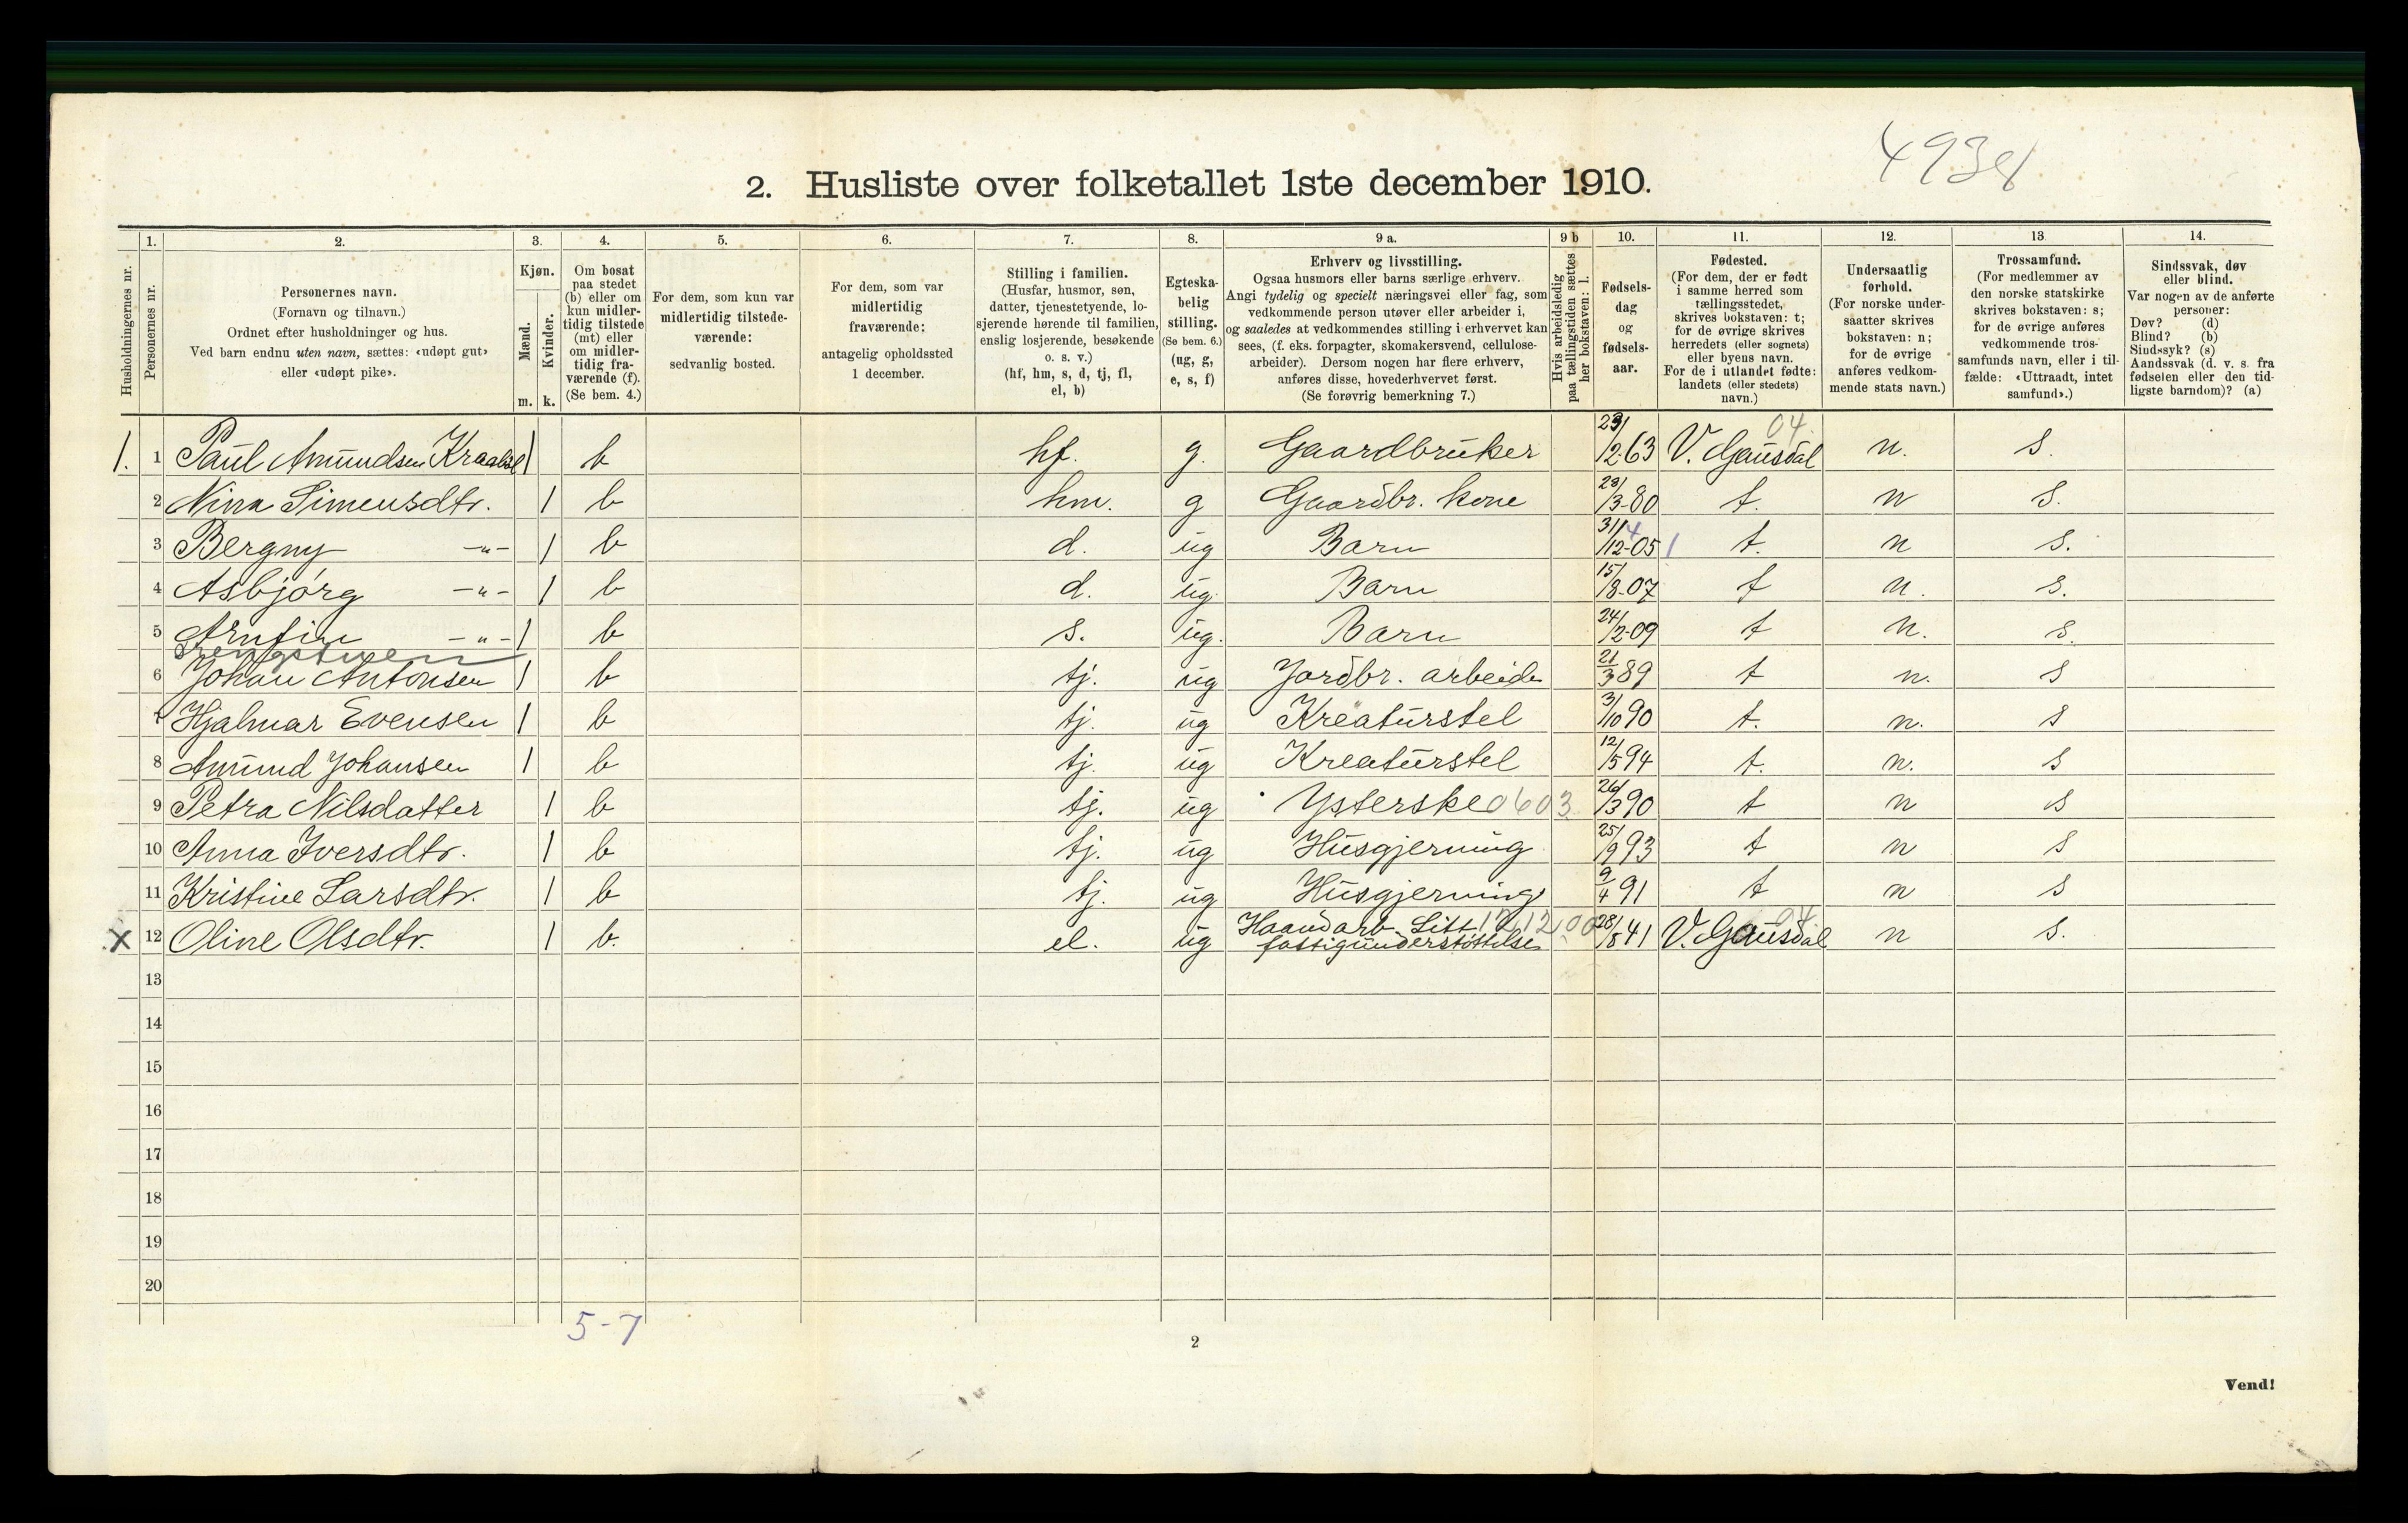 4938
2. Husliste over folketallet 1ste december 1910.
Husholdningernes nr.
1. Personernes nr.
2. Personernes navn. (Fornavn og tilnavn.) Ordnet efter husholdninger og hus. Ved barn endnu uten navn, sættes: «udøpt gut» eller «udøpt pike».
3. Kjøn. Mænd. m. Kvinder. k.
4. Om bosat paa stedet (b) eller om kun midlertidig tilstede (mt) eller om midlertidig fraværende (f). (Se bem. 4.)
5. For dem, som kun var midlertidig tilstedeværende: sedvanlig bosted.
6. For dem, som var midlertidig fraværende: antagelig opholdssted 1 december.
7. Stilling i familien. (Husfar, husmor, søn, datter, tjenestetyende, losjerende hørende til familien, enslig losjerende, besøkende o. s. v.) (hf, hm, s, d, tj, fl, el, b)
8. Egteskabelig stilling. (Se bem. 6.) (ug, g, e, s, f)
9 a. Erhverv og livsstilling. Ogsaa husmors eller barns særlige erhverv. Angi tydelig og specielt næringsvei eller fag, som vedkommende person utøver eller arbeider i, og saaledes at vedkommendes stilling i erhvervet kan sees, (f. eks. forpagter, skomakersvend, cellulosearbeider). Dersom nogen har flere erhverv, anføres disse, hovederhvervet først. (Se forøvrig bemerkning 7.)
9 b Hvis arbeidsledig paa tællingstiden sættes her bokstaven: l.
10. Fødselsdag og fødselsaar.
11. Fødested. (For dem, der er født i samme herred som tællingsstedet, skrives bokstaven: t; for de øvrige skrives herredets (eller sognets) eller byens navn. For de i utlandet fødte: landets (eller stedets) navn.)
12. Undersaatlig forhold. (For norske undersaatter skrives bokstaven: n; for de øvrige anføres vedkommende stats navn.)
13. Trossamfund. (For medlemmer av den norske statskirke skrives bokstaven: s; for de øvrige anføres vedkommende trossamfunds navn, eller i tilfælde: «Uttraadt, intet samfund».)
14. Sindssvak, døv eller blind. Var nogen av de anførte personer: Døv? (d) Blind? (b) Sindssyk? (s) Aandssvak (d. v. s. fra fødselen eller den tidligste barndom)? (a)
1. 1 Paul Amundsen Kraabøl 1 b hf. g. Gaardbruker 23/12 63 V. Gausdal 04 n. s.
2 Nina Simensdtr. 1 b hm. g Gaardbr. kone 23/3-80 t. n s.
3 Bergny -"- 1 b d. ug Barn 31/12-05 t. n s.
4 Asbjørg -"- 1 b d. ug. Barn 15/8-07 t n. s.
5 Arnfin -"- 1 b s. ug. Barn 24/2-09 t n. s.
6 Johan Antonsen 1 b tj. ug Jordbr. arbeide 21/3 89 t n. s
7 Hjalmar Evensen 1 b tj. ug Kreaturstel 3/10 90 t. n. s
8 Amund Johansen 1 b tj. ug Kreaturstel 12/5 94 t. n. s
9 Petra Nilsdatter 1 b tj. ug Ysterske 0603 26/3 90 t n s
10 Anna Iversdtr. 1 b tj. ug Husgjerning 25/9 93 t n s
11 Kristine Larsdtr. 1 b tj. ug Husgjerning 9/4 91 t n s
x 12 Oline Olsdtr. 1 b. el. ug Haandarb. Litt fattigunderstøttelse 28/8 41 V. Gausdal n s.
13
14
15
16
17
18
19
20
5-7
2
Vend!